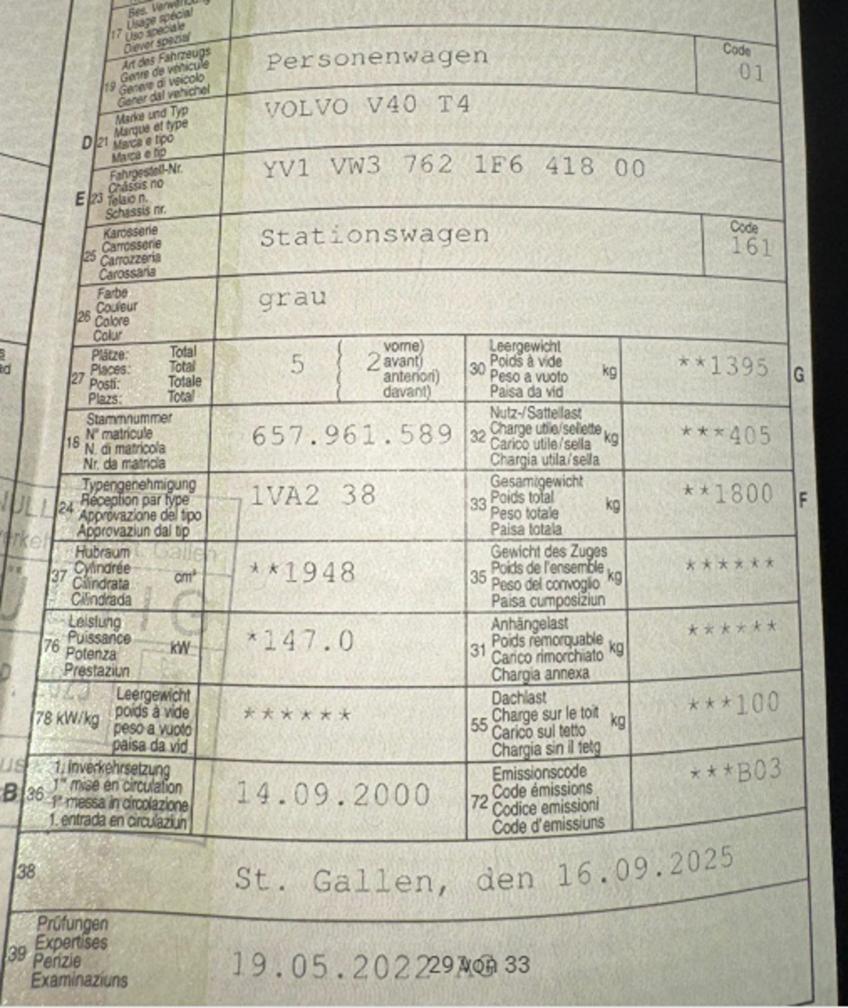 Bes. Verwendung
17 Usage spécial
Uso speciale
Diever spezial
19 Art des Fahrzeugs
Genre de véhicule
Genere di veicolo
Gener dal vehichel
Personenwagen
Code
01
D 21 Marke und Typ
Marque et type
Marca e tipo
Marca e tip
VOLVO V40 T4
E 23 Fahrgestell-Nr.
Châssis no
Telaio n.
Schassis nr.
YV1 VW3 762 1F6 418 00
25 Karosserie
Carrosserie
Carrozzeria
Carossaria
Stationswagen
Code
161
26 Farbe
Couleur
Colore
Colur
grau
27 Plätze: Total
Places: Total
Posti: Totale
Plazs: Total
5 ( 2 vorne)
avant)
anteriori)
davant)
30 Leergewicht
Poids à vide
Peso a vuoto
Paisa da vid
kg
**1395
G
18 Stammnummer
N° matricule
N. di matricola
Nr. da matricla
657.961.589
32 Nutz-/Sattellast
Charge utile/sellette
Carico utile/sella
Chargia utila/sella
kg
***405
24 Typengenehmigung
Réception par type
Approvazione del tipo
Approvaziun dal tip
1VA2 38
33 Gesamtgewicht
Poids total
Peso totale
Paisa totala
kg
**1800
F
37 Hubraum
Cylindrée
Cilindrata
Cilindrada
cm³
**1948
35 Gewicht des Zuges
Poids de l'ensemble
Peso del convoglio
Paisa cumposiziun
kg
******
76 Leistung
Puissance
Potenza
Prestaziun
kW
*147.0
31 Anhängelast
Poids remorquable
Carico rimorchiato
Chargia annexa
kg
******
78 kW/kg
Leergewicht
poids à vide
peso a vuoto
paisa da vid
******
55 Dachlast
Charge sur le toit
Carico sul tetto
Chargia sin il tetg
kg
***100
B 36 1. Inverkehrsetzung
1re mise en circulation
1a messa in circolazione
1. entrada en circulaziun
14.09.2000
72 Emissionscode
Code émissions
Codice emissioni
Code d'emissiuns
***B03
38
St. Gallen, den 16.09.2025
39 Prüfungen
Expertises
Perizie
Examinaziuns
19.05.2022
29 von 33